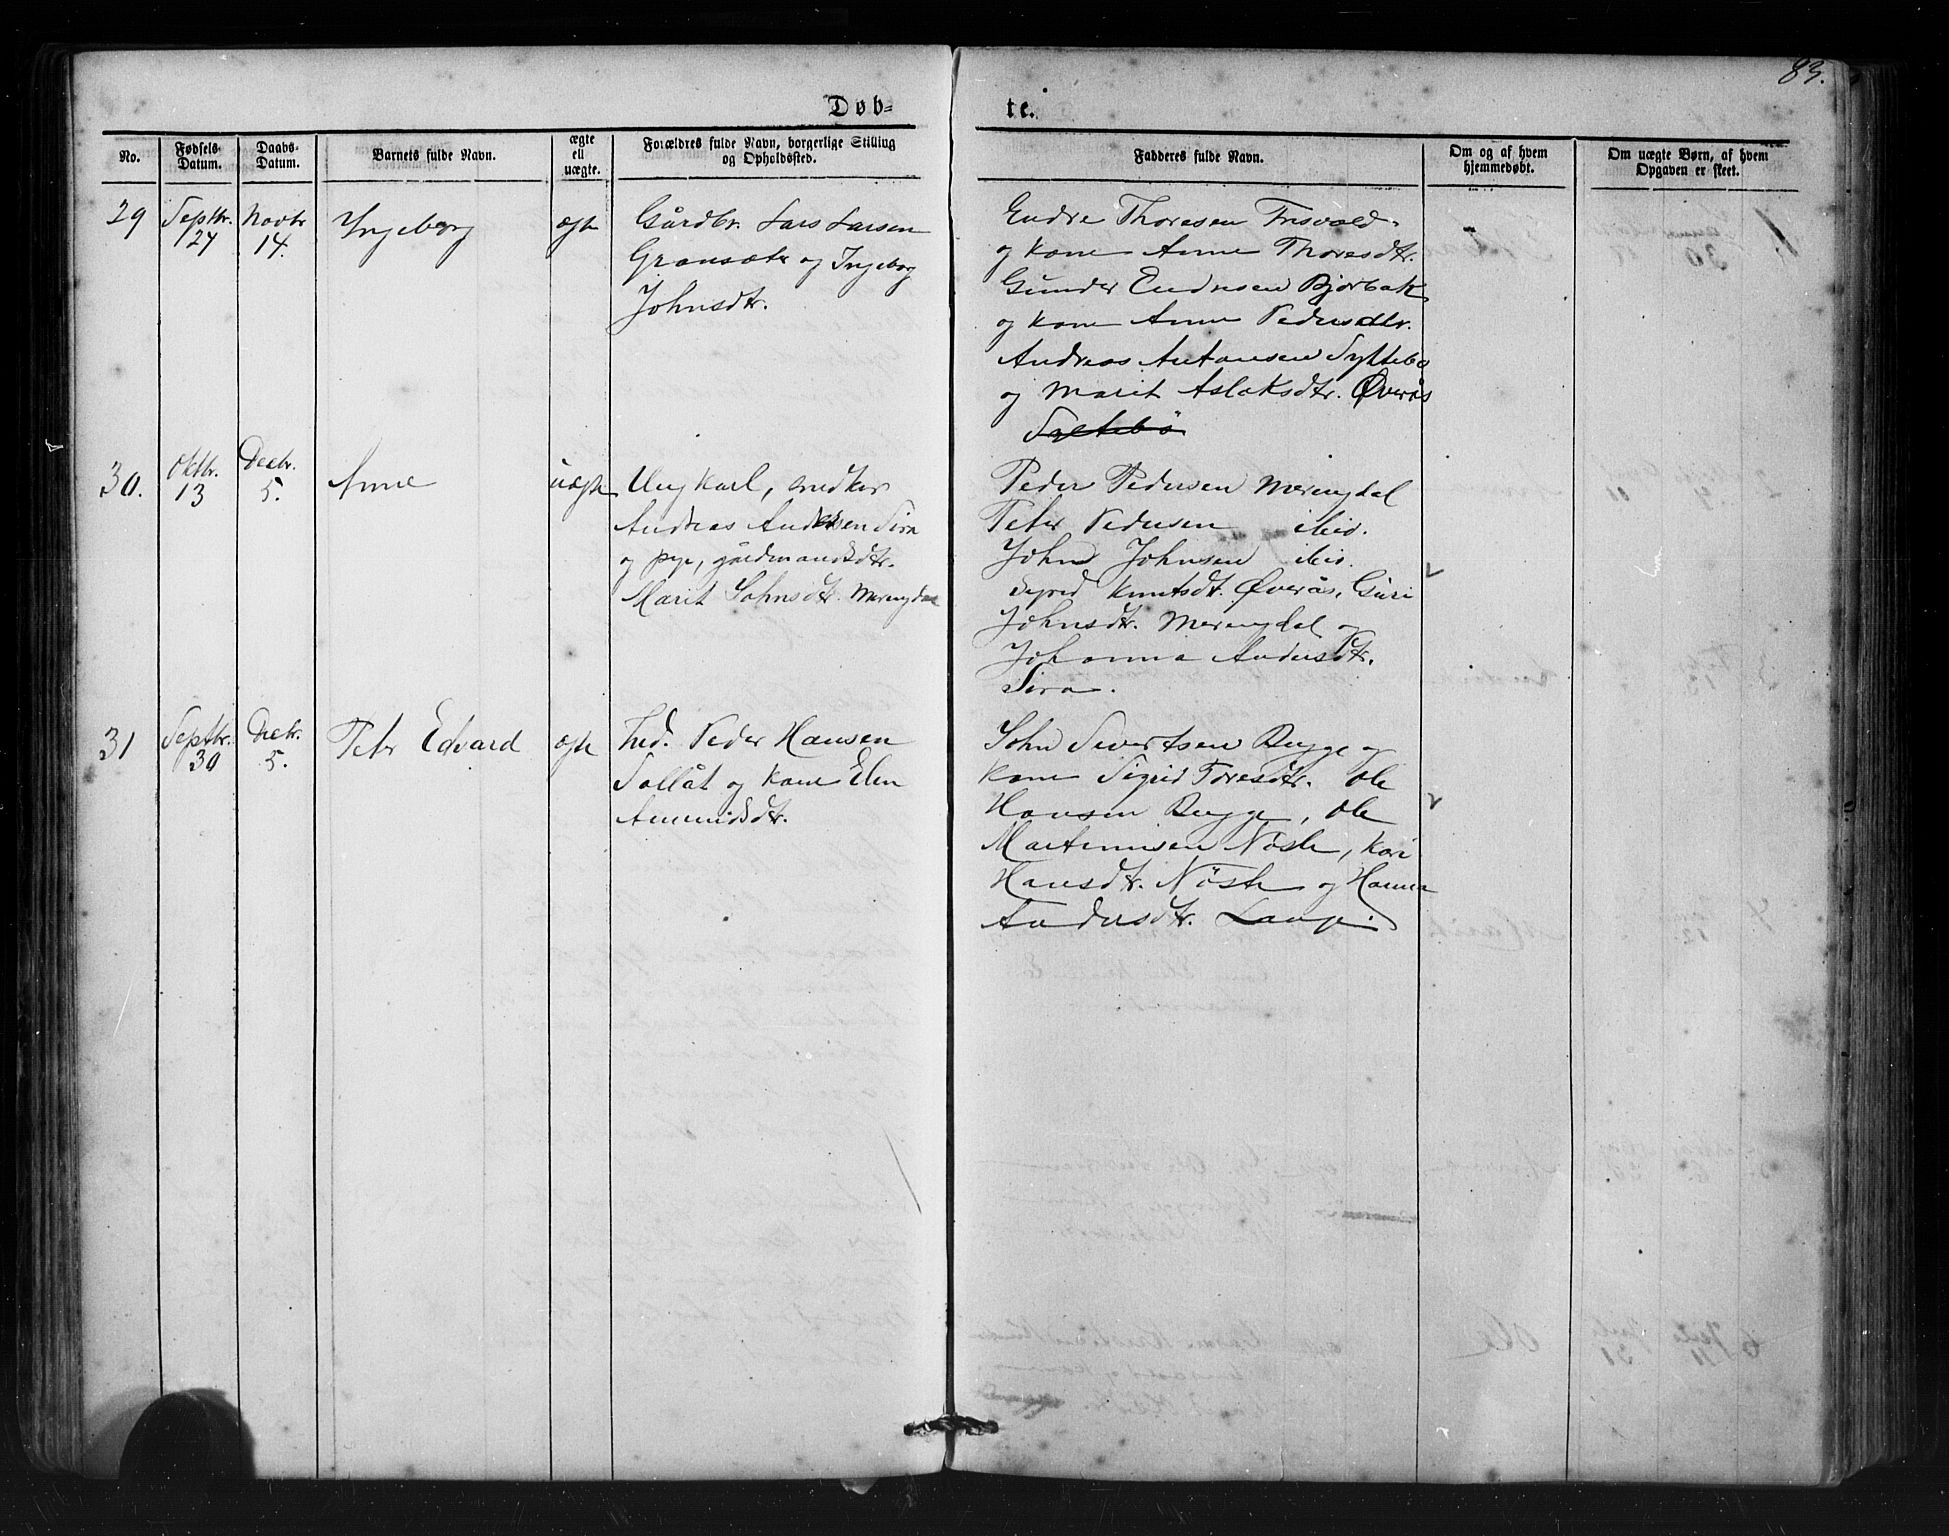 83.
Døb- te.
No. Fødsels- Datum. Daabs- Datum. Barnets fulde Navn. ægte ell uægte. Forældres fulde Navn, borgerlige Stilling og Opholdssted. Fadderes fulde Navn. Om og af hvem hjemmedøbt. Om uægte Børn, af hvem Opgaven er skeet.
29 Septbr. 24 Novbr 14. Ingeborg ægte
Gårdbr. Lars Larsen
Gransæter og Ingeborg
Johnsdtr.
Endre Thoresen Frisvold
og kone Anne Thoresdtr.
Gunder Endresen Bjorbak
og kone Anne Pedersdtr.
Andreas Antonsen Syltebø
og Marit Aslaksdtr. Øverås
Syltebø
30. Oktbr. 13 Decbr. 5. Anne uægte
Ungkarl, snedker
Andreas Andersen Sira
og pige, gårdmandsdtr.
Marit Johnsdtr. Meringdal
Peder Pedersen Meringdal
Peter Pedersen ibid.
John Johnsen ibid.
Sigrid Knutsdt. Øverås, Guri
Johnsdtr. Meringdal og
Johanna Andersdtr.
Sira.
31 Septbr. 30 Decbr. 5. Peter Edvard ægte
Ind. Peder Hansen
Sollåt og kone Elen
Amundsdtr.
John Sivertsen Rugge og
kone Sigrid Toresdtr. Ole
Hansen Rugge, Ole
Martinusen Nöste, Kari
Hansdtr. Nöste og Hanna
Andersdtr. Lange.